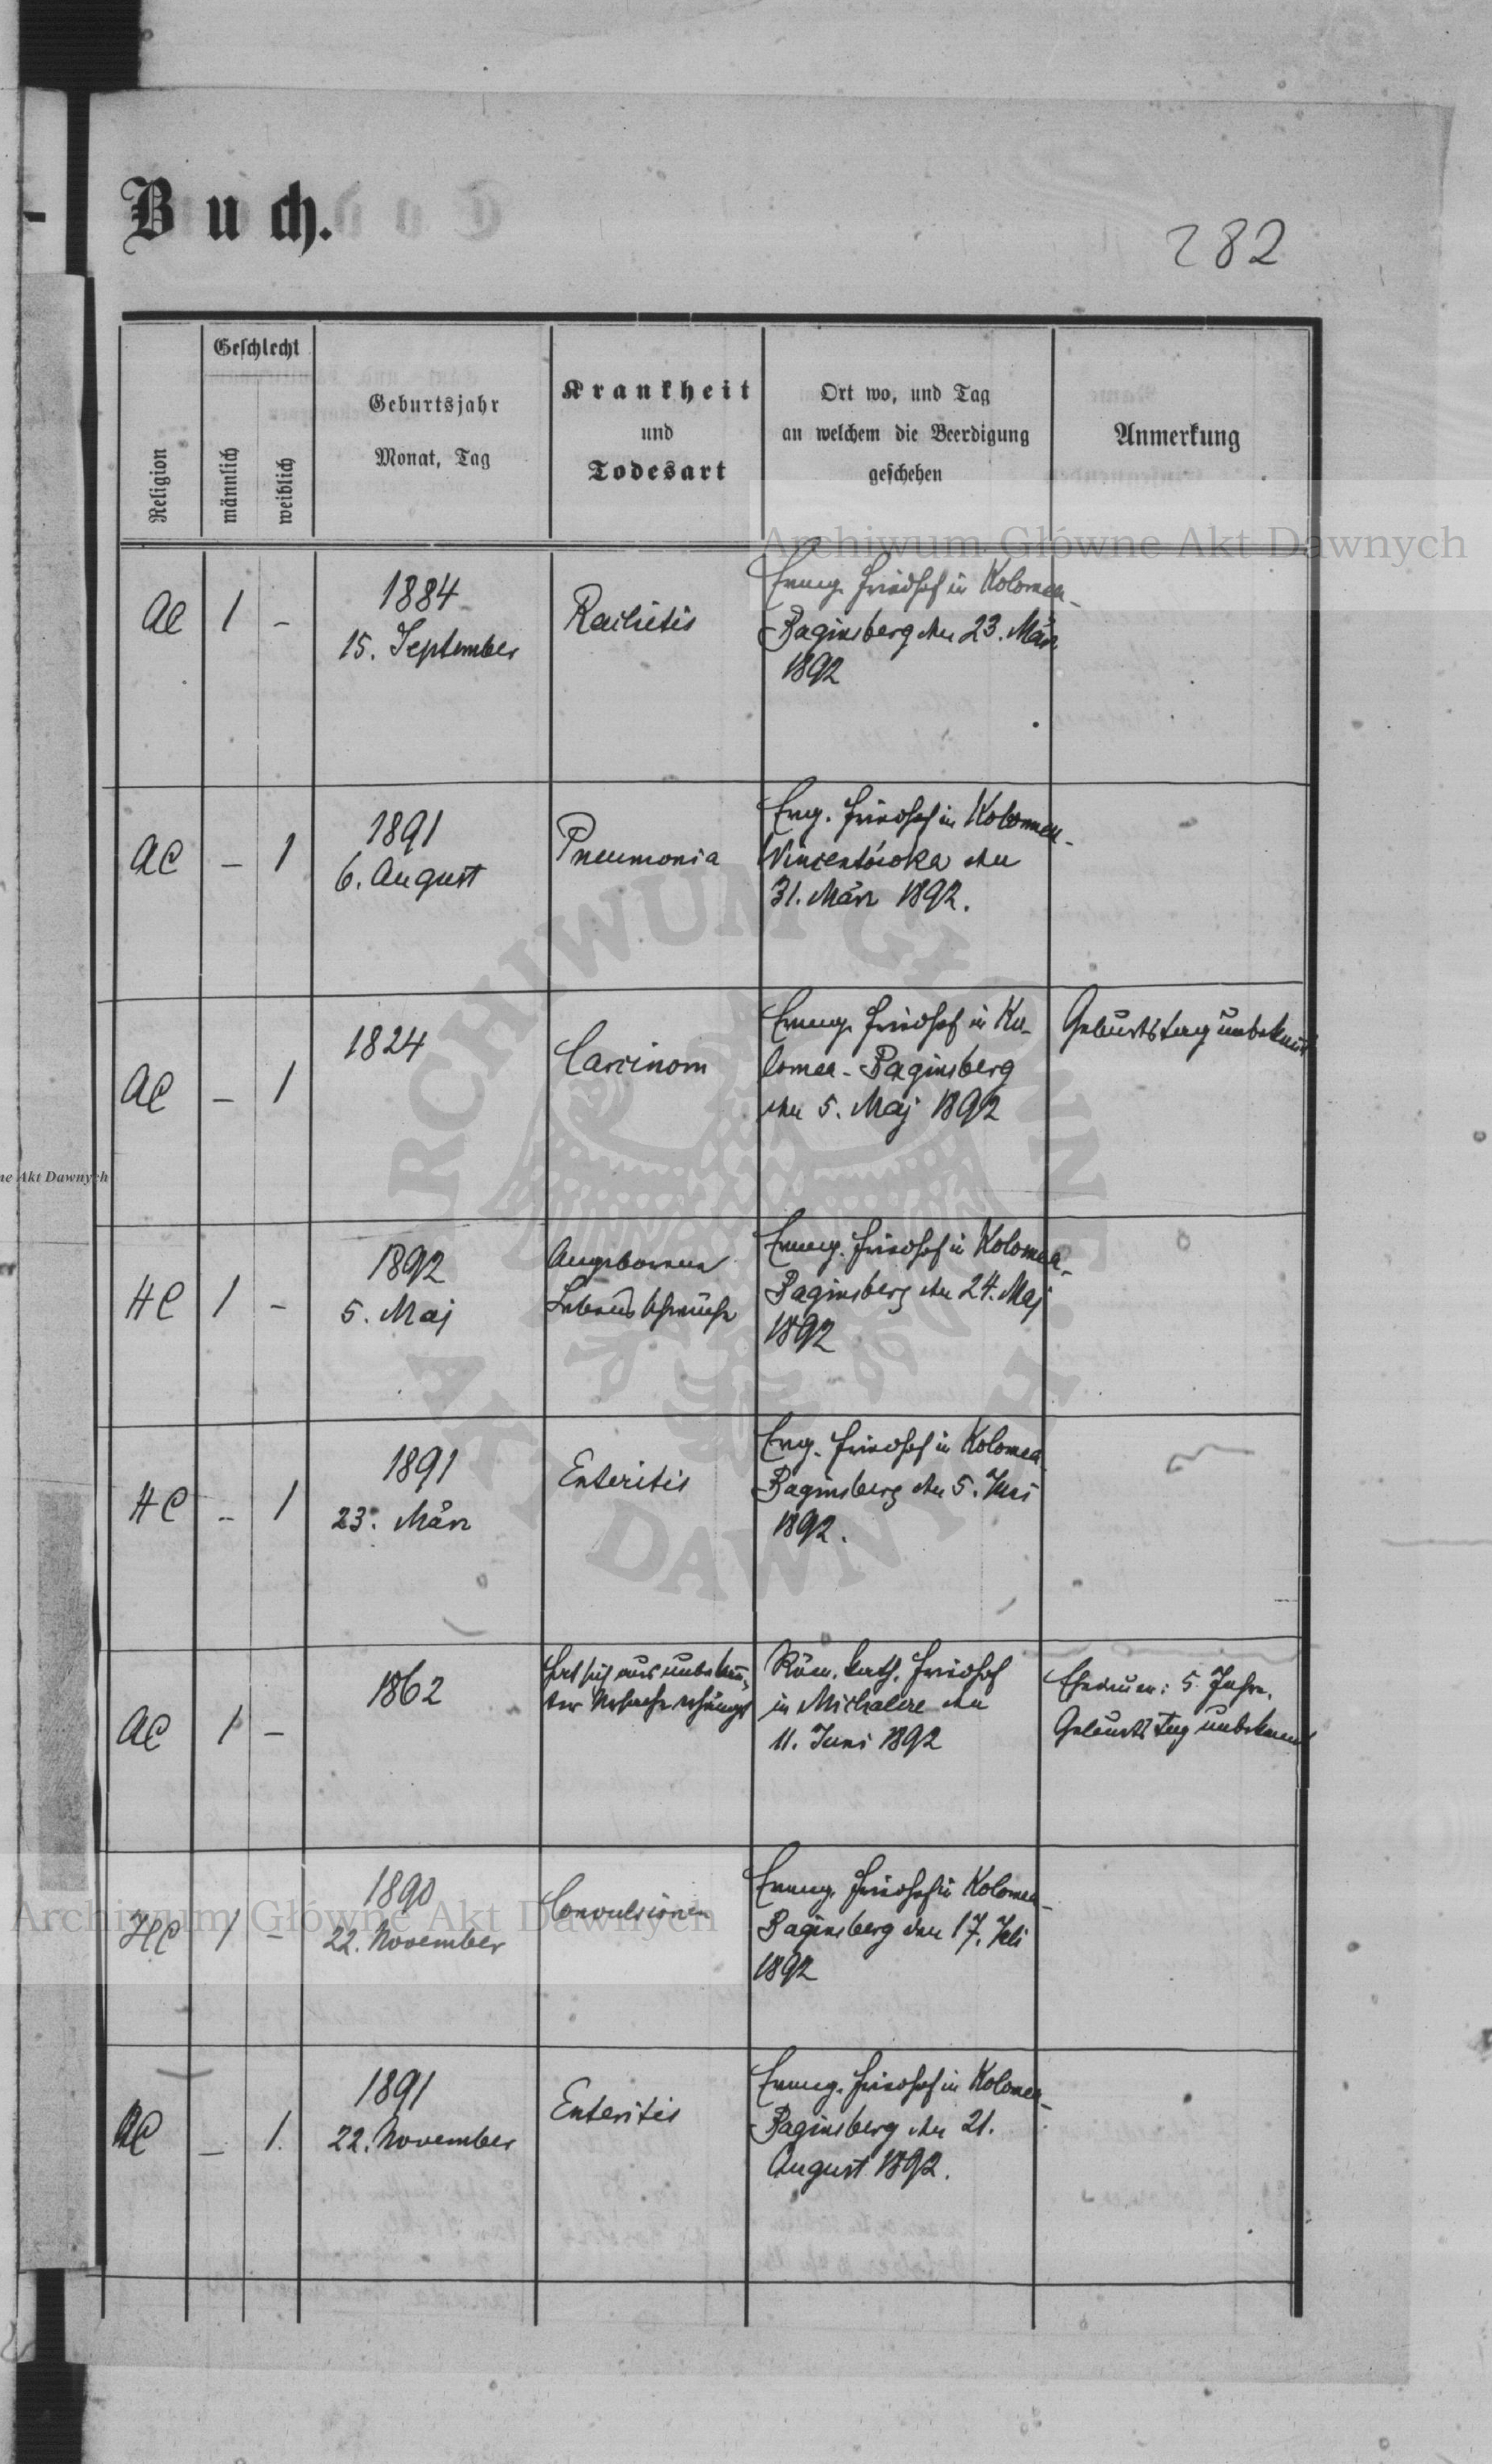 Buch.
282
Religion
Geschlecht
männlich
weiblich
Geburtsjahr
Monat, Tag
Krankheit
und
Todesart
Ort wo, und Tag
an welchem die Beerdigung
geschehen
Anmerkung
Archiwum Główne Akt Dawnych
AC 1 –
1884
15. September
Rachitis
Evang. Friedhof in Kolomea-
Baginsberg den 23. März
1892
AC – 1
1891
6. August
Pneumonia
Evg. Friedhof in Kolomea-
Vincentówka den
31. März 1892.
AC – 1
1824
Carcinom
Evang. Friedhof in Ko-
lomea-Baginsberg
den 5. Maj 1892
Geburtstag unbekannt
ne Akt Dawnych
HC 1 –
1892
5. Maj
Angeborene
Lebensschwäche
Evang. Friedhof in Kolomea-
Baginsberg den 24. Maj
1892
HC – 1
1891
23. März
Enteritis
Evg. Friedhof in Kolomea-
Baginsberg den 5. Juni
1892.
AC 1 –
1862
Hat sich aus unbekann-
ter Ursache erhängt
Röm. kath. Friedhof
in Michalcze den
11. Juni 1892
Ehedauer: 5 Jahre.
Geburtstag unbekannt
HC 1 –
1890
22. November
Convulsionen
Evang. Friedhof in Kolomea-
Baginsberg den 17. Juli
1892
Archiwum Główne Akt Dawnych
AC – 1.
1891
22. November
Enteritis
Evang. Friedhof in Kolomea-
Baginsberg den 21.
August 1892.
ARCHIWUM GŁÓWNE
AKT DAWNYCH